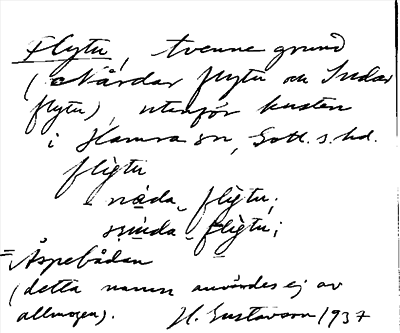 Flytu, tvenne grund
(Nårdar flytu och Sudar
flytu), utanför kusten
i Hamra sn, Gotl. s. hd.
flìgtu
nɷda_ flìgtu;
sụnda_ flìgtu;
= Äspebådan
(detta namn användes ej av
allmogen). H. Gustavson 1937